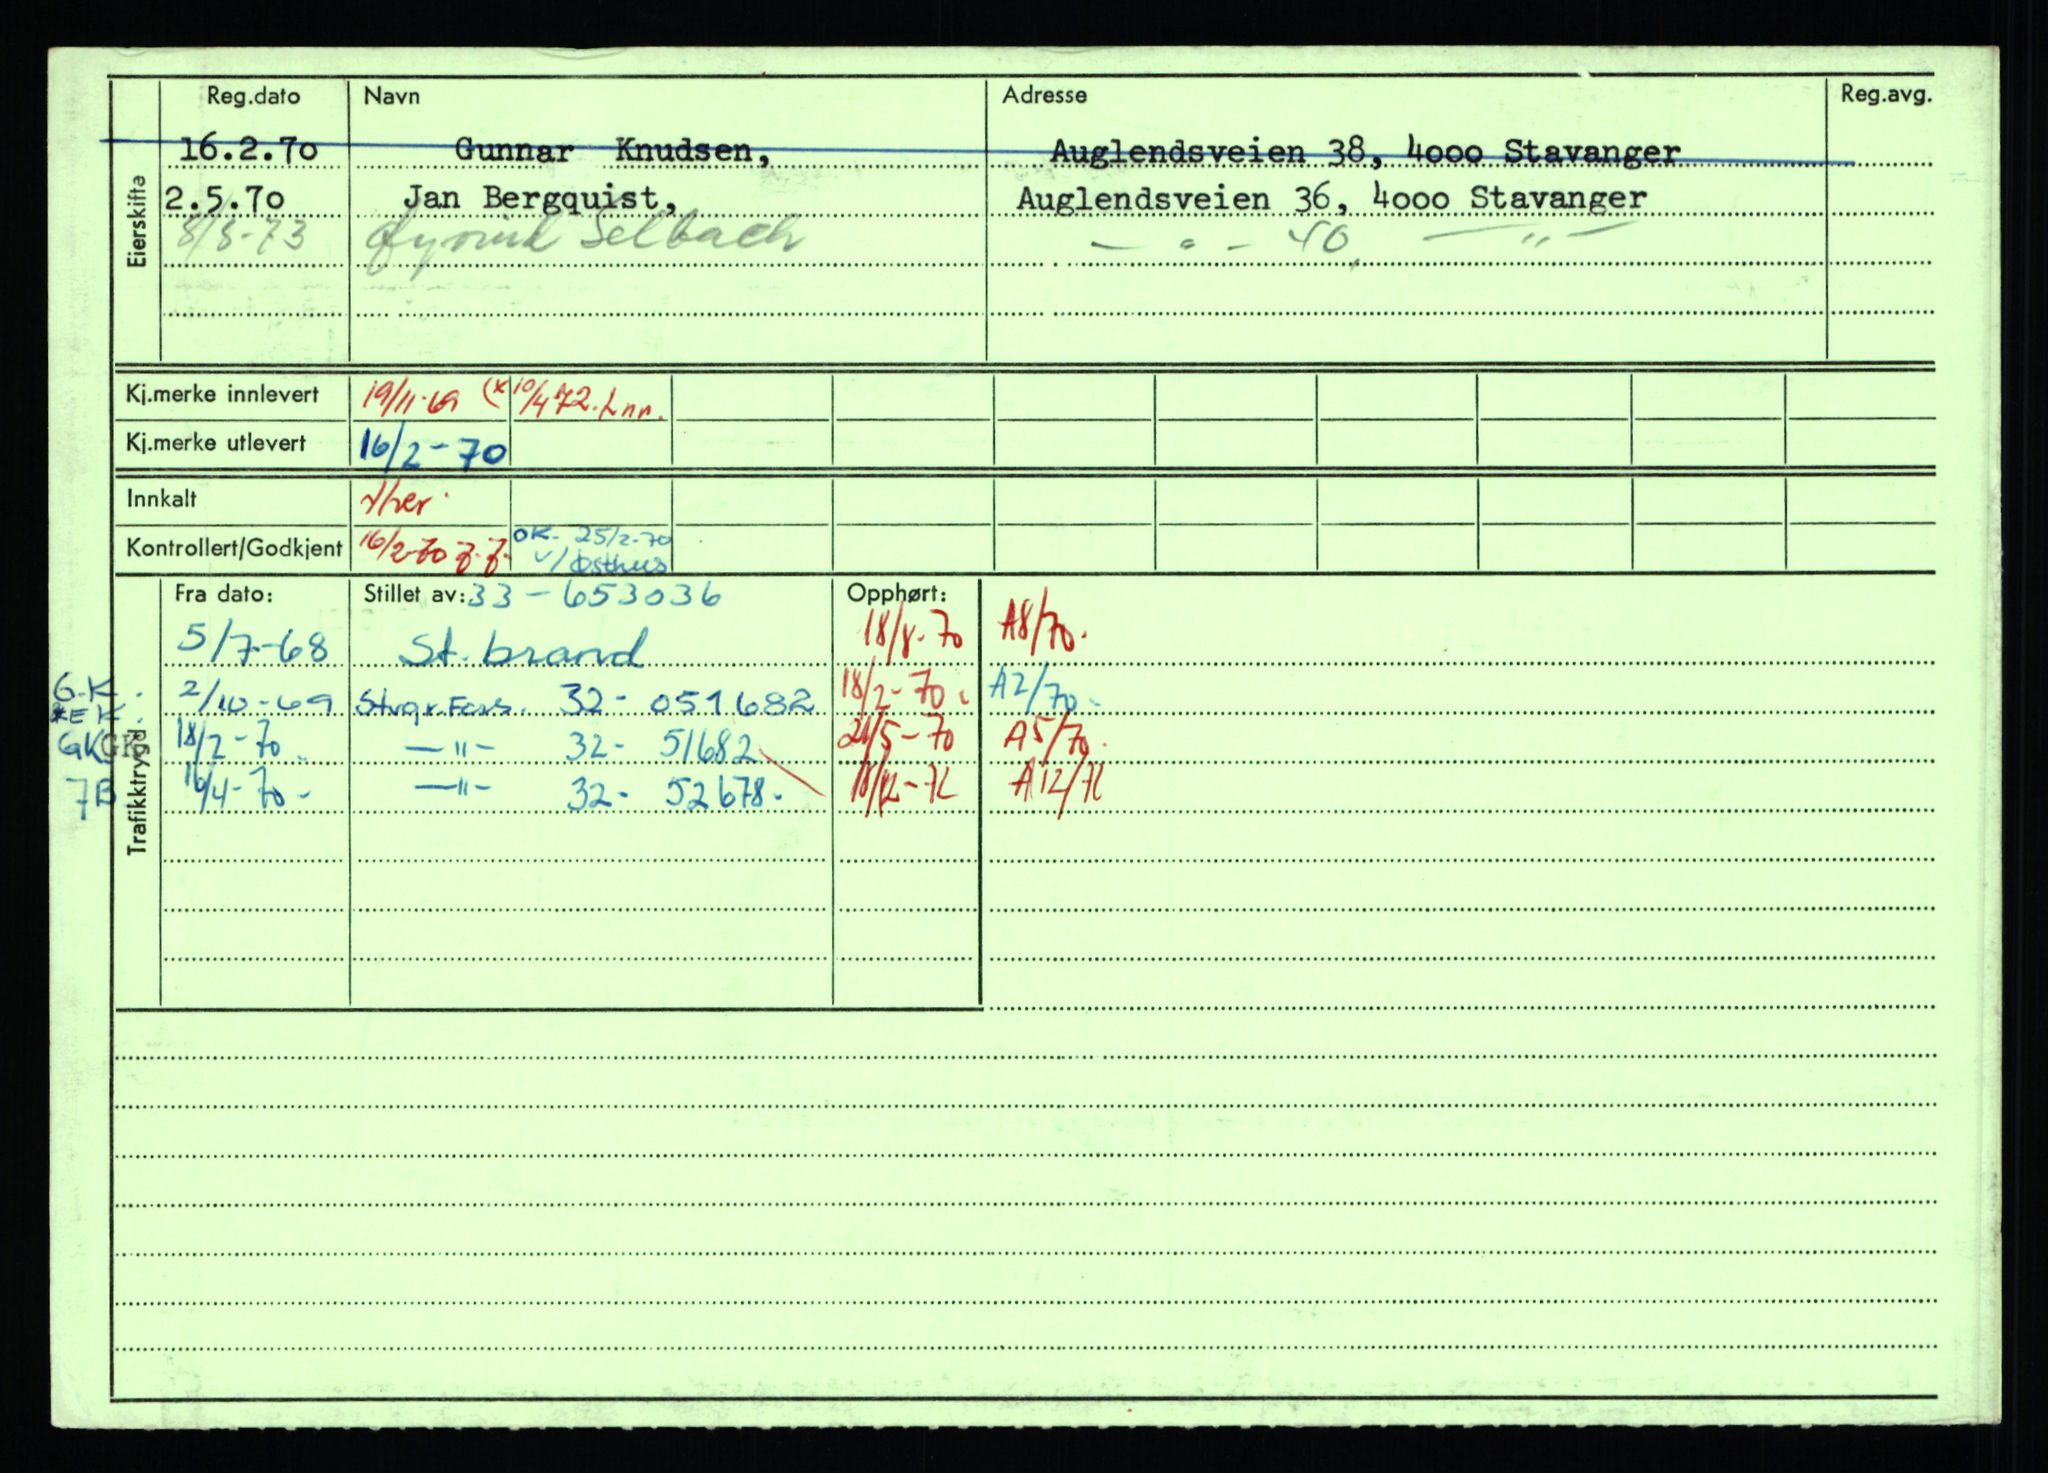 Reg.dato Navn Adresse Reg.avg.
Eierskifte
16.2.70 Gunnar Knudsen, Auglendsveien 38, 4000 Stavanger
2.5.70 Jan Bergquist, Auglendsveien 36, 4000 Stavanger
8/8-73 Øyvind Selbach — " — 40, — " —
Kj.merke innlevert 19/11-69 (x 10/4 72. Lnn.
Kj.merke utlevert 16/2-70
Innkalt v/her
Kontrollert/Godkjent 16/2-70 OK. 25/2-70
v/Østhus
Trafikktrygd
Fra dato: Stillet av: 33-653036 Opphørt:
5/7-68 St.brand 18/8-70 A8/70.
G.K. 2/10-69 Stvgr.Fors. 32- 051682 18/2-70. A2/70.
*EK.
GK GK 18/2-70. —"— 32- 51682 21/5-70 A5/70.
7B 16/4-70- —"— 32- 52678. 18/12-72 A12/72